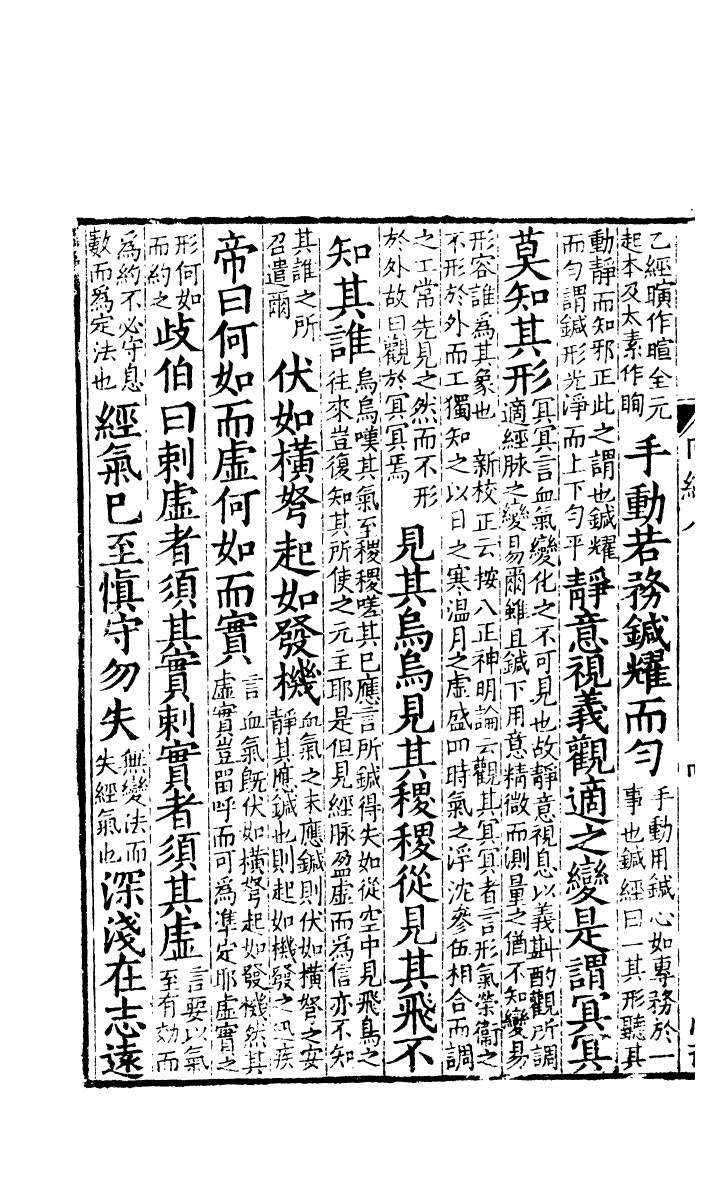 乙經瞚作暄全元
起本及太素作眴
手動若務鍼耀而勻
手動用鍼心如專務於一
事也鍼經曰一其形聽其
動靜而知邪正此之謂也鍼耀
而勻謂鍼形光淨而上下勻平
靜意視義觀適之變是謂冥冥
莫知其形
冥冥言血氣變化之不可見也故靜意視息以義斟酌觀所調
適經脉之變易爾雖且鍼下用意精微而測量之猶不知變易
形容誰爲其象也　新校正云按八正神明論云觀其冥冥者言形氣榮衞之
不形於外而工獨知之以日之寒温月之虛盛四時氣之浮沈參伍相合而調
之工常先見之然而不形
於外故曰觀於冥冥焉
見其烏烏見其稷稷從見其飛不
知其誰
烏烏嘆其氣至稷稷嗟其巳應言所鍼得失如從空中見飛鳥之
往來豈復知其所使之元主耶是但見經脉盈虛而爲信亦不知
其誰之所
召遣爾
伏如橫弩起如發機
血氣之未應鍼則伏如橫弩之安
靜其應鍼也則起如機發之迅疾
帝曰何如而虛何如而實
言血氣旣伏如橫弩起如發機然其
虛實豈留呼而可爲準定耶虛實之
形何如
而約之
歧伯曰刺虛者須其實刺實者須其虛
言要以氣
至有効而
爲約不必守息
數而爲定法也
經氣巳至愼守勿失
無變法而
失經氣也
深淺在志遠